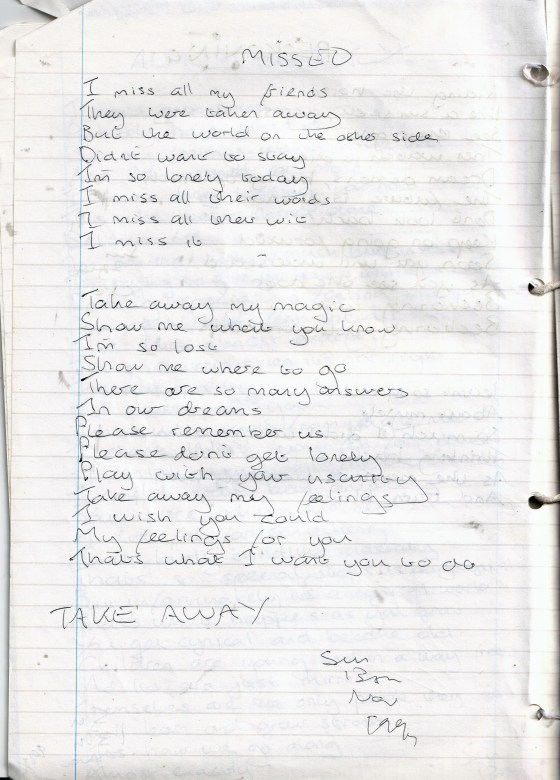 MISSED
I miss all my fiends
They were taken away
But the world on the other side
Didnt want to stay
Im so lonely today
I miss all their words
I miss all their wit
I miss it
Take away my magic
Show me what you know
Im so lost
Show me where to go
There are so many answers
In our dreams
Please remember us
Please dont get lonely
Play with your
Take away my feelings
I wish you could
My feelings for you
Thats what I want you to do
TAKE AWAY
Sun
13th
Nov